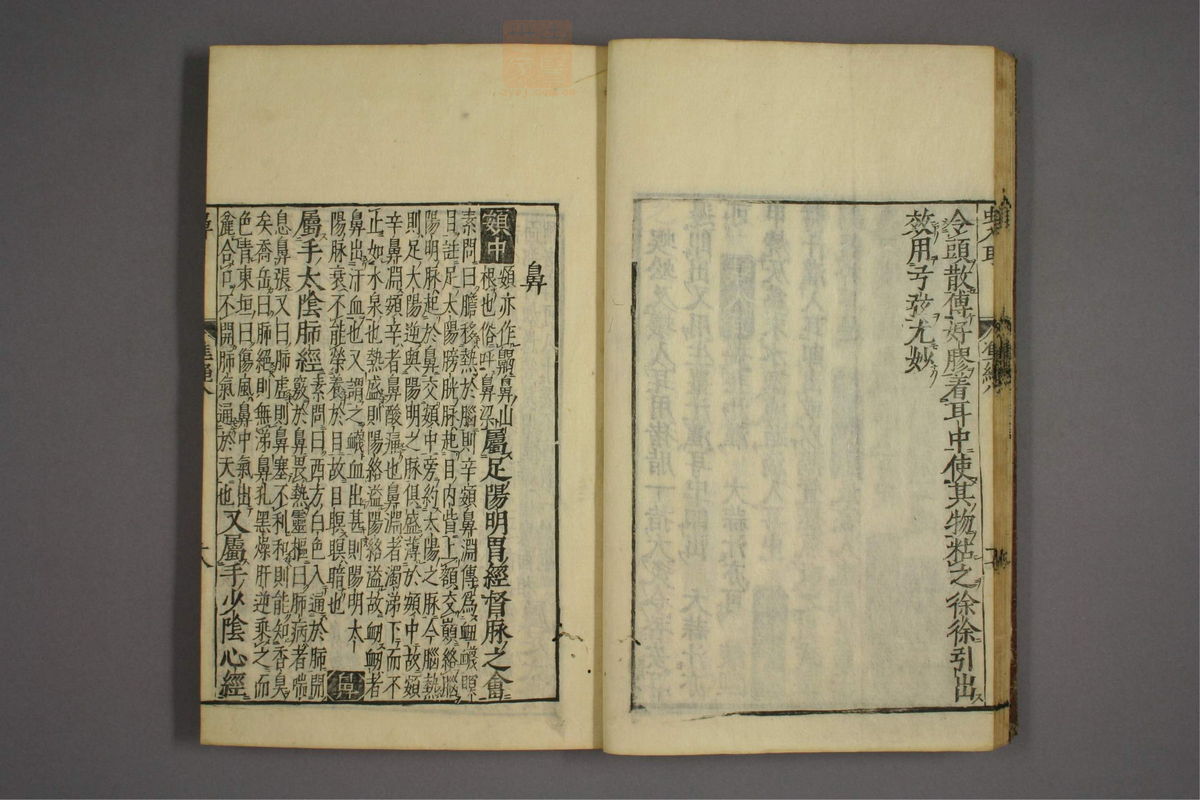 令頭散傅好膠着耳中使其物粘之徐徐引出
效用弓弦尤妙
鼻
頞中
頞亦作齃鼻山
根也俗呼鼻梁
屬足陽明胃經督脉之會
素問曰膽移熱於腦則辛頞鼻淵傳爲衄衊瞑
目註足太陽膀胱脉起目内眥上額交巔絡腦
陽明脉起於鼻交頞中旁約太陽之脉今腦熱
則足太陽逆與陽明之脉俱盛薄於頞中故頞
辛鼻淵頞辛者鼻酸痛也鼻淵者濁涕下而不
止如水泉也熱盛則陽絡溢陽絡溢故衄衄者
鼻出汗血也又謂之衊血出甚則陽明太
陽脉衰不能榮養於目故目瞑瞑暗也
鼻
屬手太陰肺經
素問曰西方白色入通於肺開
竅於鼻畏熱靈樞曰肺病者喘
息鼻張又曰肺虛則鼻塞不利利則能知香臭
矣喬岳曰肺絕則無涕鼻孔黑燥肝逆乘之而
色青東垣曰傷風鼻中氣出
麄合口不開肺氣通於天也
又屬手少陰心經